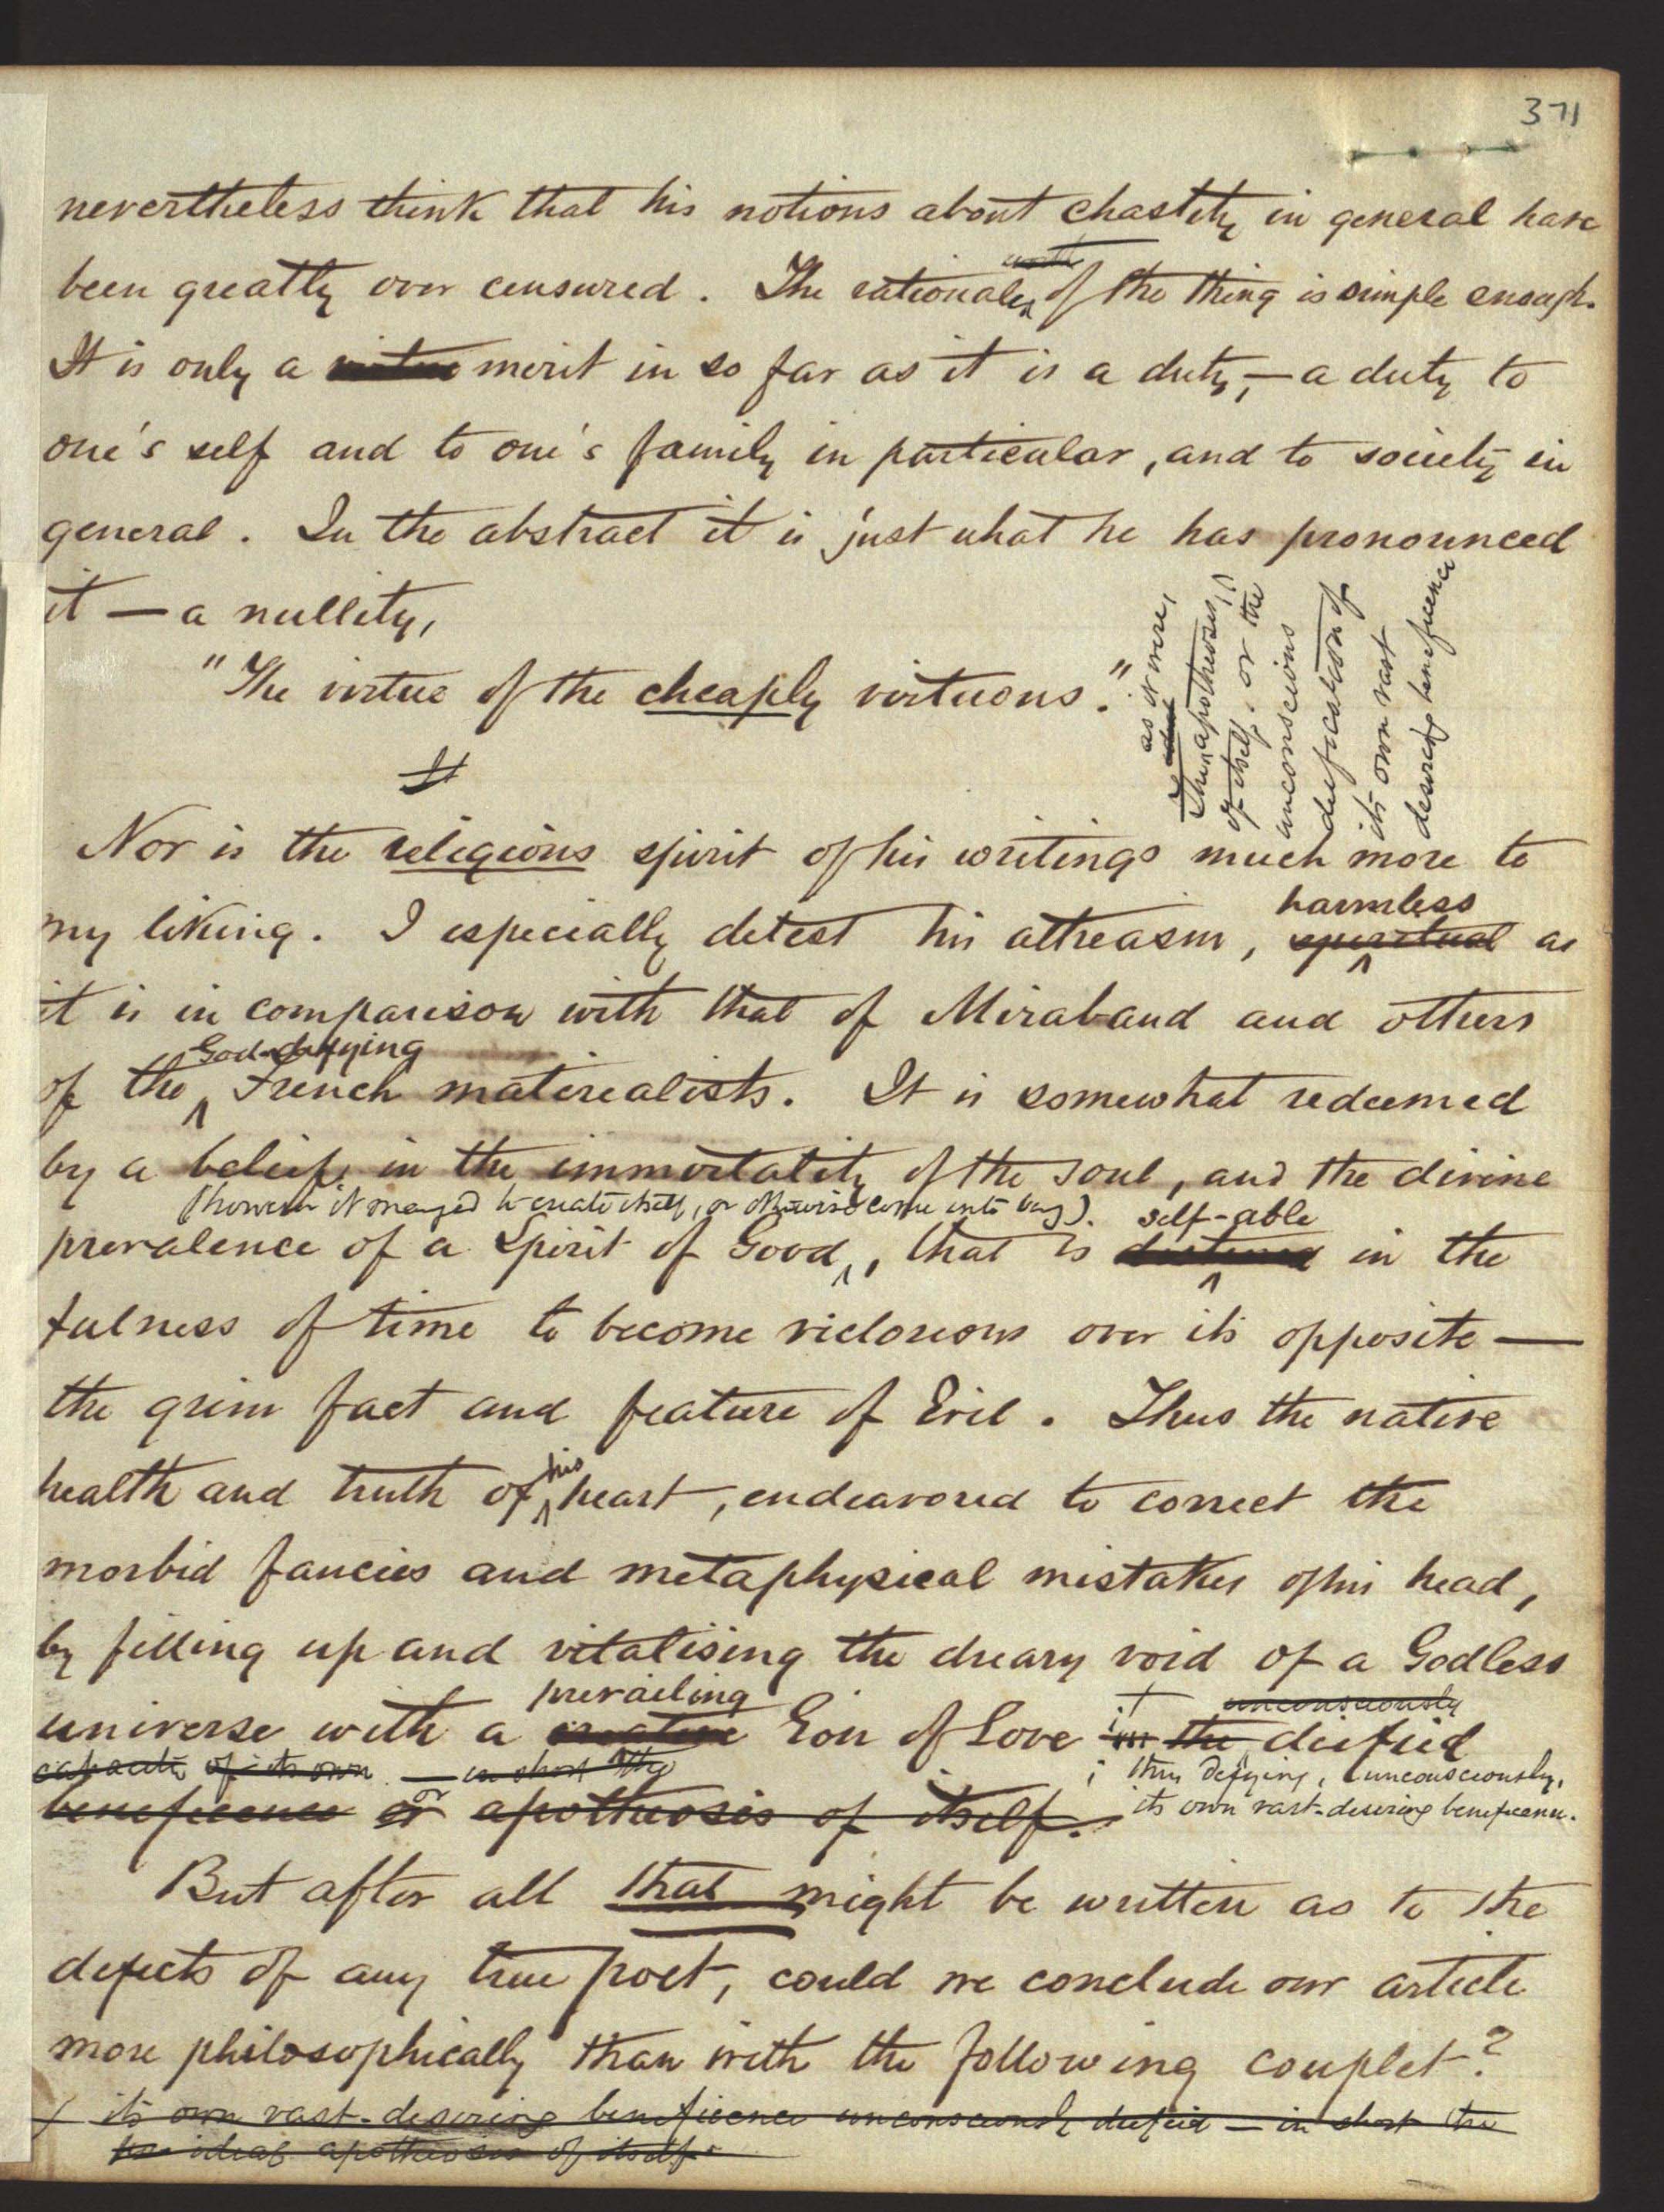 371
nevertheless think that his notions about chastity in general have
been greatly over censured. The rationale of the thing is simple enough.
It is only a virtue merit in so far as it is a duty, — a duty to
one's self and to one's family in particular, and to society in
general. In the abstract it is just what he has pronounced
it — a nullity,
"The virtue of the cheaply virtuous."
as it were,
The apotheosis
of itself, or the
unconscious
deification of
its own vast
desiring beneficence
Nor is the religious spirit of his writings much more to
harmless
my liking. I especially detest his atheasm, spiritual as
it is in comparison with that of Miraband and others
God-defying
of the French materealists. It is somewhat redeemed
by a belief, in the immortality of the soul, and the divine
(however it managed to create itself, or otherwise come into being). self-able
prevalence of a Spirit of Good, that is destined in the
fulness of time to become victorious over its opposite —
the grim fact and feature of Evil. Thus the native
his
health and truth of heart, endeavored to correct the
morbid fancies and metaphysical mistakes of his head,
by filling up and vitalising the dreary void of a Godless
prevailing unconsciously
universe with a creative Eon of Love in the deified
capacity of its own — in short the
; thus deifying, unconsciously,
beneficence or apotheosis of itself.
its own vast-desiring beneficence.
But after all that might be written as to the
defects of any true poet, could we conclude our article
more philosophically than with the following couplet?
its own vast-desiring beneficence unconsciously deified — in short the
ideal apotheosis of itself.